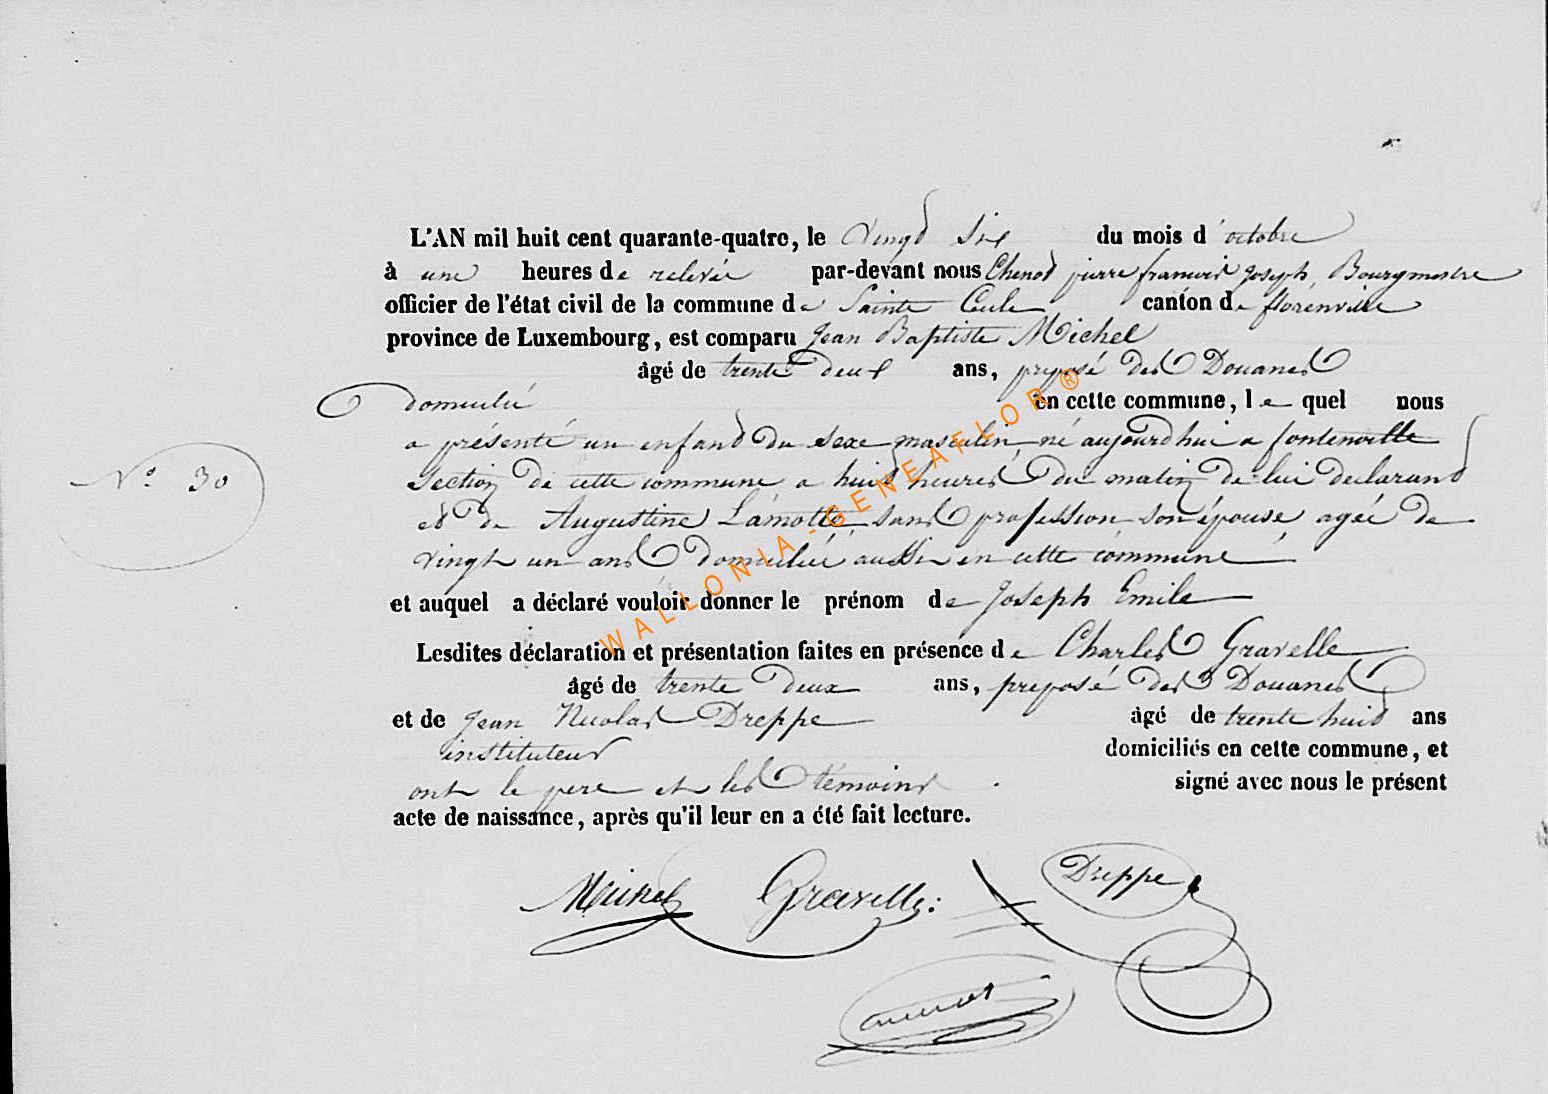 L'AN mil huit cent quarante-quatre, le vingd six du mois d'octobre
à une heures de relevée par-devant nous Chenod pierre francois joseph, Bourgmestre
officier de l'état civil de la commune de Sainte Cecile canton de florenville
province de Luxembourg, est comparu Jean Baptiste Michel
âgé de trente deux ans, preposé des Douanes
domicilié en cette commune, lequel nous
a présenté un enfand du sexe masculin né aujourd'hui a fontenoille
Section de cette commune a huid heures du matin de lui declarand
ed de Augustine Lamotte sans profession son épouse agée de
vingt un ans domiciliée aussi en cette commune
N° 30
et auquel a déclaré vouloir donner le prénom de Joseph Emile
Lesdites déclaration et présentation faites en présence de Charles Gravelle
âgé de trente deux ans, preposé des Douanes
et de Jean Nicolas Dreppe âgé de trente huid ans
instituteur domiciliés en cette commune, et
ont le pere et les témoins signé avec nous le présent
acte de naissance, après qu'il leur en a été fait lecture.
Michel Gravelle: Dreppe
WALLONIA-GENEAFLOR®